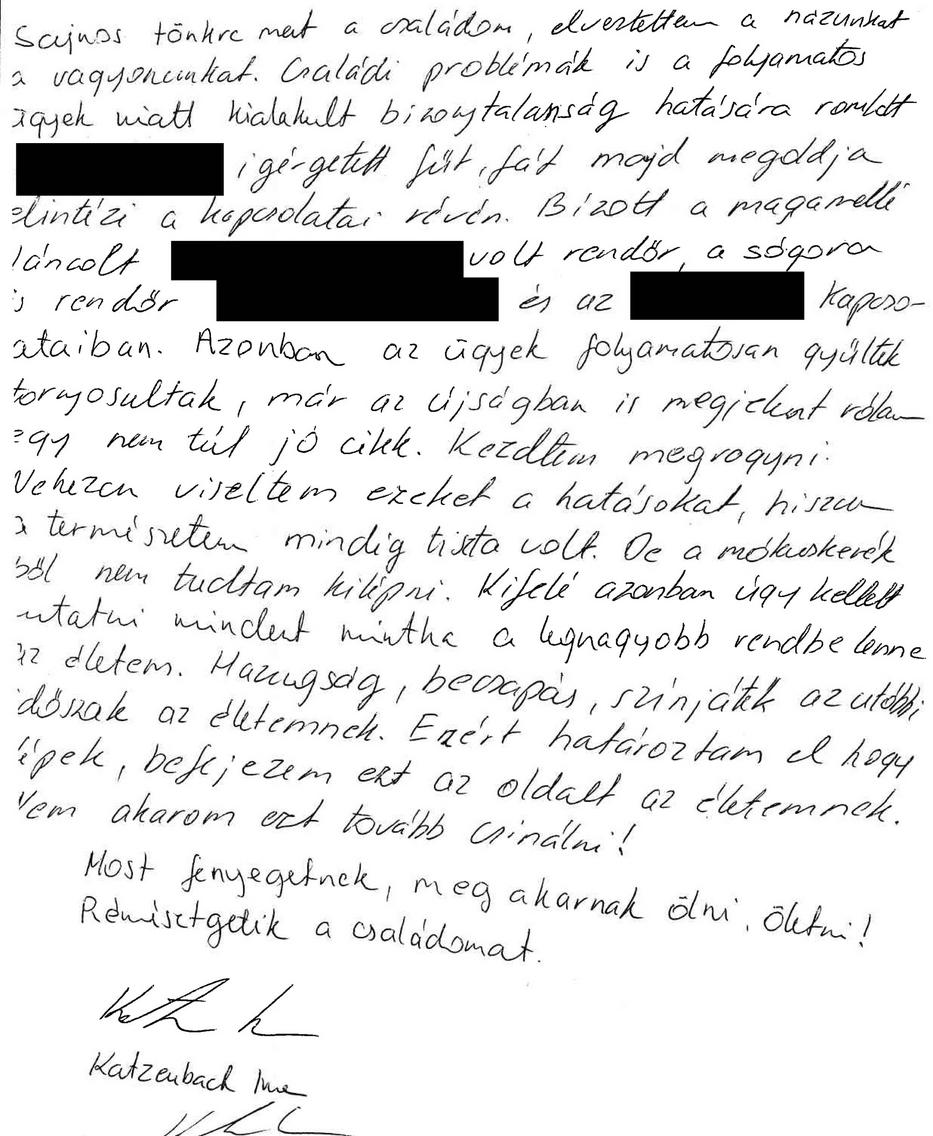 Sajnos tönkre ment a családom, elvesztettem a házunkat
a vagyonunkat. Családi problémák is a folyamatos
ügyek miatt kialakult bizonytalanság hatására romlott
igérgetett fűt, fát majd megoldja
elintézi a kapcsolatai révén. Bízott a maga mellé
láncolt volt rendőr, a sógora
is rendőr és az kapcso-
ataiban. Azonban az ügyek folyamatosan gyűltek
tornyosultak, már az újságban is megjelent rólam
egy nem túl jó cikk. Kezdtem megrogyni.
Nehezen viseltem ezeket a hatásokat, hiszen
a természetem mindig tiszta volt. De a mókuskerék
ből nem tudtam kilépni. Kifelé azonban úgy kellett
mutatni mindent mintha a legnagyobb rendbe lenne
az életem. Hazugság, becsapás, színjáték az utóbbi
időszak az életemnek. Ezért határoztam el hogy
lépek, befejezem ezt az oldalt az életemnek.
Nem akarom ezt tovább csinálni!
Most fenyegetnek, meg akarnak ölni, öletni!
Rémisztgetik a családomat.
Katzenbach Imre